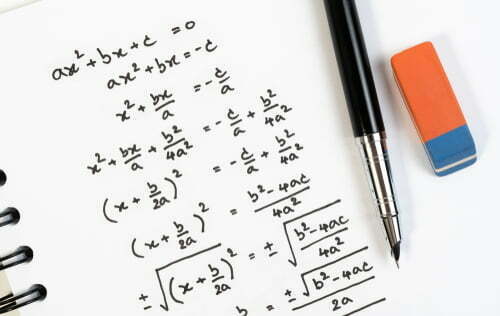 ax² + bx + c = 0
ax² + bx = -c
x² + bx/a = -c/a
x² + bx/a + b²/4a² = -c/a + b²/4a²
(x + b/2a)² = -c/a + b²/4a²
(x + b/2a)² = b² - 4ac/4a²
± √(x + b/2a)² = ± √b² - 4ac/4a²
b = ± √b² - 4ac/2a